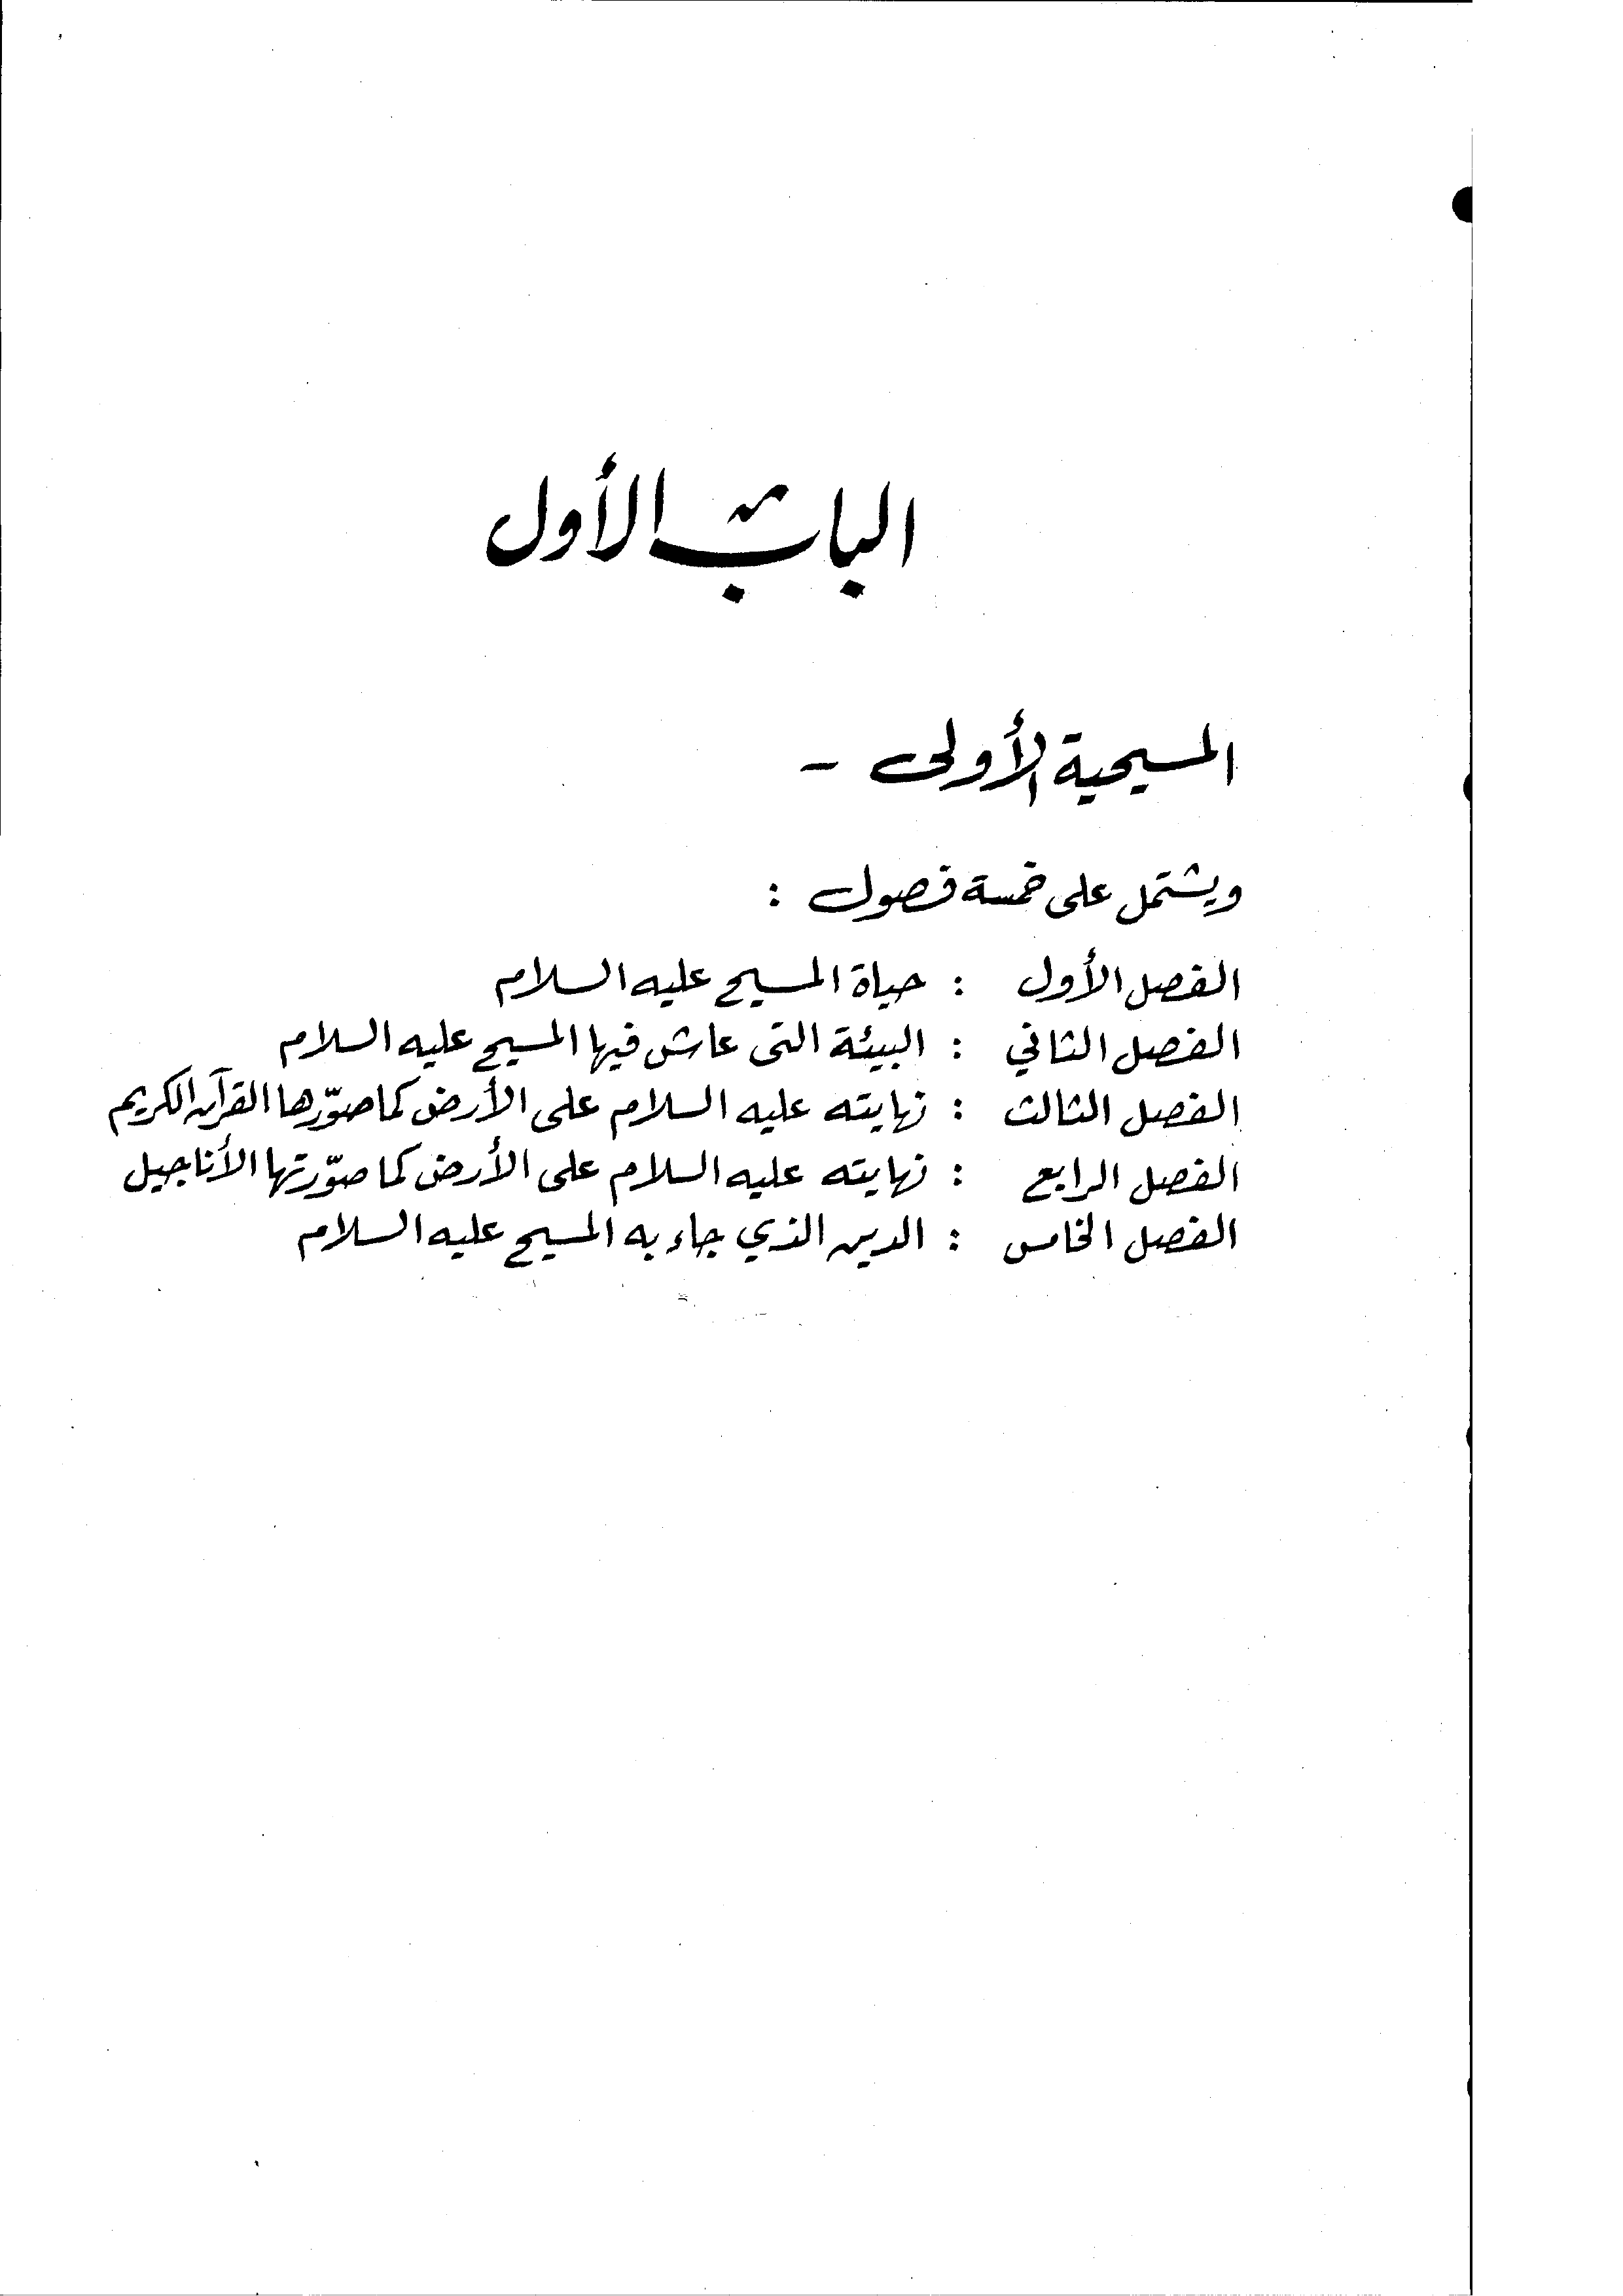 الباب الأول
المسيحية الأولى -
ويشتمل على خمسة فصول :
الفصل الأول : حياة المسيح عليه السلام
الفصل الثاني : البيئة التى عاش فيها المسيح عليه السلام
الفصل الثالث : نهايته عليه السلام على الأرض كما صوّرها القرآن الكريم
الفصل الرابع : نهايته عليه السلام على الأرض كما صوّرتها الأناجيل
الفصل الخامس : الدين الذي جاء به المسيح عليه السلام